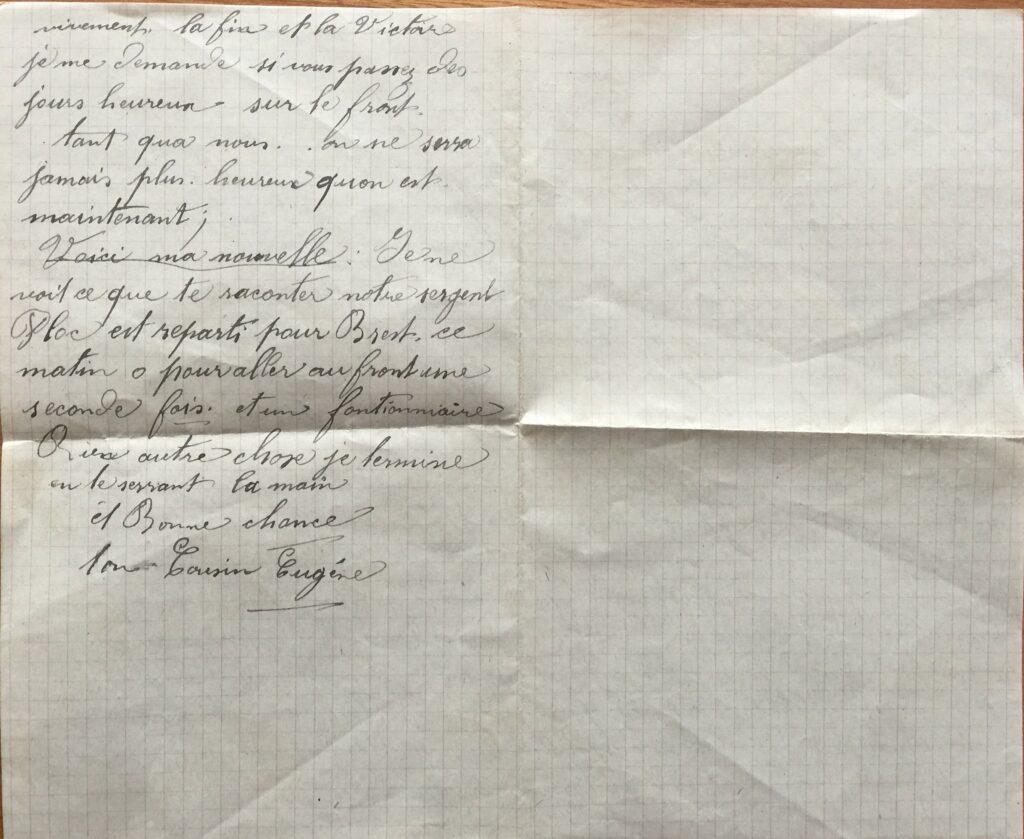 vivement. la fin et la Victoire
je me demande si vous passez des
jours heureux - sur le front.
tant qua nous. on ne serra
jamais plus. heureux quon est
maintenant;
Voici ma nouvelle : Je ne
voit ce que te raconter notre sergent
Floc est reparti pour Brest. ce
matin o pour aller au front une
seconde fois. et un fontionniaire
Rien autre chose je termine
en te serrant la main
et Bonne chance
ton Cousin Eugéne